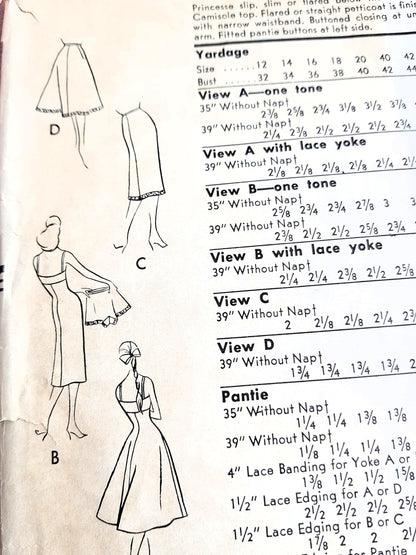 Princesse slip, slim or flared below
Camisole top. Flared or straight petticoat is finis
with narrow waistband. Buttoned closing at un
arm. Fitted pantie buttons at left side.
Yardage
Size ...... 12 14 16 18 20 40 42
Bust ...... 32 34 36 38 40 42 44
View A—one tone
35" Without Nap†
2⅜ 2⅝ 2¾ 3⅛ 3½ 3⅞
39" Without Nap†
2¼ 2⅜ 2½ 2½ 2½ 2¾
View A with lace yoke
39" Without Nap†
2⅛ 2⅛ 2⅛ 2⅛ 2¼ 2½
View B—one tone
35" Without Nap†
2⅝ 2¾ 2¾ 2⅞ 3
39" Without Nap†
2⅜ 2½ 2½ 2½ 2⅝ 2¾
View B with lace yoke
39" Without Nap†
2¼ 2¼ 2⅜ 2½ 2⅝
View C
39" Without Nap†
2 2⅛ 2⅛ 2¼ 2¾
View D
39" Without Nap†
1¾ 1¾ 1¾ 1¾ 2
Pantie
35" Without Nap†
1¼ 1¼ 1⅜ 1⅜
39" Without Nap†
1⅛ 1¼ 1¼ 1⅜
4" Lace Banding for Yoke A or
1⅜ 1½ 1½ 1⅝
1½" Lace Edging for A or D
2½ 2½ 2½ 2⅝
1½" Lace Edging for B or C
1⅞ 2 2
Edging for Pantie
D
C
B